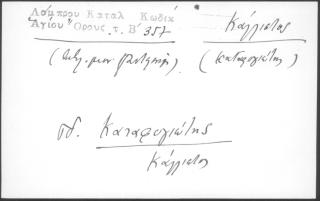 Λάμπρου Καταλ Κωδίκ
Ἁγίου Ὄρους τ. Β΄ 357 Κάλλιστος
(Καταφυγιώτης)
βλ. Καταφυγιώτης
Κάλλιστος